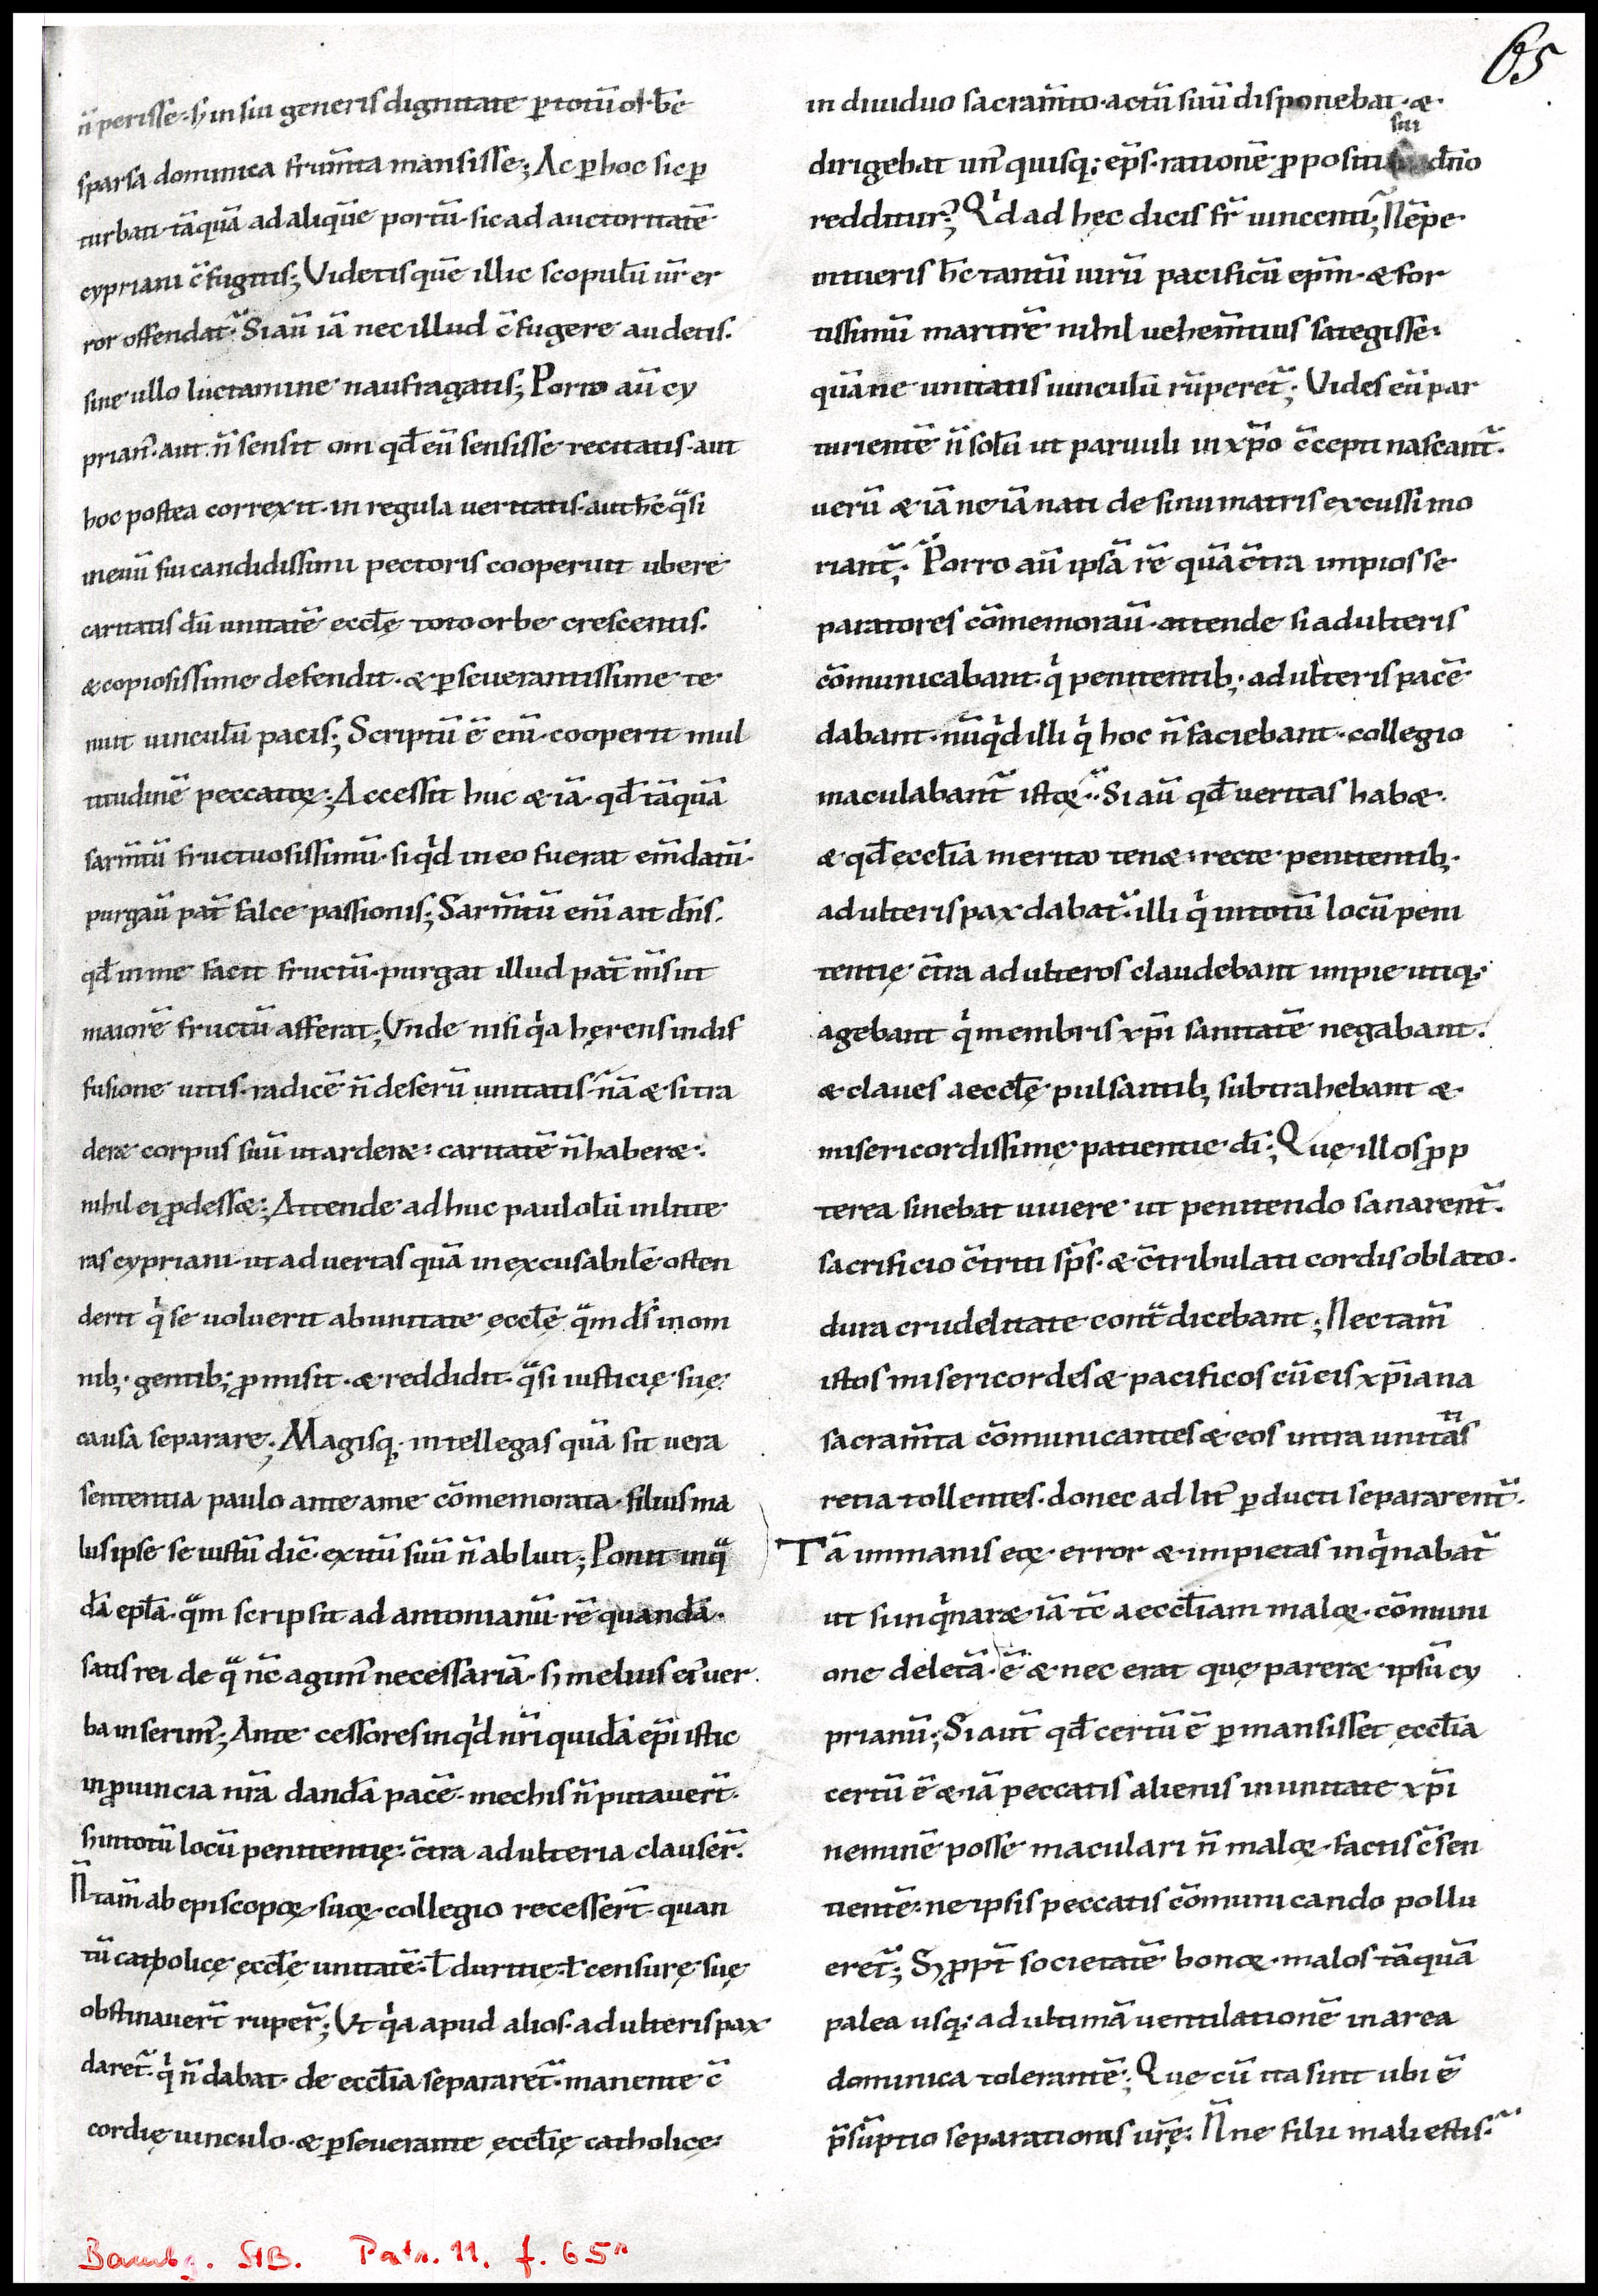 65
n̄ perisse · ſ; in sui generis dignitate ꝑ totū orbē
sparsa dominica frum̄ta mansisse; Ac ꝑ hoc sic ꝑ
turbati · tāquā ad aliquē portū · sic ad auctoritatē
cypriani c̄fugitis; Videtis quē illic scopulū ur̄ er
ror offendat᷑ · Si aū iā nec illud c̄fugere audetis ·
sine ullo luctamine naufragatis; Porro aū cy
prian᾿ · aut n̄ sensit om qd̄ eū sensisse recitatis · aut
hoc postea correxit · in regula ueritatis · aut hc̄ qͣsi
neuū sui candidissimi pectoris cooperuit ubere
caritatis dū unitatē ęccl̄ę toto orbe crescentis ·
& copiosissime defendit · & ꝑseuerantissime te
nuit uinculū pacis; Scriptū ē eni̅ · cooperit mul
titudinē peccatoꝝ; Accessit huc & iā · qd̄ tāquā
sarm̄tū fructuosissimū · si qͥd in eo fuerat em̄datū ·
purgau̅ pat̄ falce passionis; Sarm̄tū eni̅ ait dn̄s ·
qd̄ in me facit fructū · purgat illud pat̄ m̄s ut
maiorē fructū afferat; Vnde nisi qͥa hęrens in dif
fusione uitis · radicē n̄ deserū unitatis · nā & si tra
der& corpus suū ut arder& : caritatē n̄ haber& ·
nihil ei ꝓdess&; Attende adhuc paulolū in litte
ras cypriani · ut aduertas quā inexcusabilē osten
derit qͥ se uoluerit ab unitate ęccl̄ę qͣm dſ̄ in om
nib; · gentib; ꝓmisit · & reddidit · qͣsi iusticię suę
causa separare; Magisq; · intellegas quā sit uera
sententia paulo ante a me cōmemorata · filius ma
lus ipse se iustū dic̄ · exitū suū n̄ abluit; Ponit in qͣ
dā epl̄a · qͣm scripsit ad antonianū · rē quandā ·
satis rei de qͣ nc̄ agim᾿ necessariā · ſ; melius ei᾿ uer
ba inserim᾿; Ante cessores inqͥd nr̄i quidā epi̅ istic
in ꝓuincia nr̄a dandā pacē · mechis n̄ putauer̄t ·
ſ; in totū locū penitentię : c̄tra adulteria clauser̄ ·
N̄ tam̄ ab episcopoꝝ · suoꝝ · collegio recesser̄t quan
tū catholicę ęccl̄ę unitatē · ł duritię · ł censurę suę
obstinauer̄t ruper̄; Vt qͥa apud alios · adulteris pax
daret᷑ · qͥ n̄ dabat · de eccl̄ia separaret᷑ · manente c̄
cordię uinculo · & ꝑseuerante ęccl̄ię catholicę
in diuiduo sacram̄to · actū suū disponebat · &
sui
dirigebat un᾿ quisq; ep̄s · rationē ꝓpositu dn̄o
redditur᷑; Qͥd ad hęc dicis fr̄ uincenti᷑; Nēpe
intueris hc̄ tantū uirū pacificū epm̄ · & for
tissimū martirē nihil uehem̄tius sategisse
quā ne unitatis uinculū rūperet᷑; Vides eū par
turientē n̄ solū ut paruuli in xp̄o c̄cepti nascant᷑ ·
uerū & iā ne iā nati de sinu matris excussi mo
riant᷑; Porro aū ipsā rē quā c̄tra impios se
paratores cōmemorau̅ · attende si adulteris
cōmunicabant qͥ penitentib; · adulteris pacē
dabant · nūqͥd illi qͥ hoc n̄ faciebant · collegio
maculabant᷑ istoꝝ᷑ · Si aū qd̄ ueritas hab& ·
& qd̄ eccl̄ia merito ten& · recte penitentib; ·
adulteris pax dabat᷑ · illi qͥ in totū locū peni
tentię c̄tra adulteros claudebant impie utiq;
agebant qͥ membris xp̄i sanitatē negabant ·
& claues aeccl̄ę pulsantib; subtrahebant &
misericordissimę patientie dī; Quę illos ꝓp
terea sinebat uiuere ut penitendo sanarent᷑ ·
sacrificio c̄triti sp̄s · & c̄tribulati cordis oblato ·
dura crudelitate contͣdicebant; Nec tam̄
istos misericordes & pacificos cū eis xp̄iana
sacram̄ta cōmunicantes & eos intra unitatis
retia tollentes · donec ad lit᾿ ꝑducti separarent᷑ ·
Tā immanis eoꝝ · error & impietas inqͥnabat᷑
ut si inqͥnar& iā tc̄ aeccl̄iam maloꝝ · cōmuni
one deletā · ē & nec erat quę parer& ipsū cy
prianū; Si aut̄ qd̄ certū ē ꝑmansisset eccl̄ia
certū ē & iā peccatis alienis in unitate xp̄i
neminē posse maculari n̄ maloꝝ · factis c̄sen
tientē : ne ipsis peccatis cōmunicando pollu
eret᷑; S; ꝓpt̄ societatē bonoꝝ · malos tāquā
palea usq; ad ultimā uentilationē in area
dominica tolerantē; Que cū ita sint ubi ē
p̄sūptio separationis ur̄ę; N̄ne filii mali estis᷑ ·
Bambg. StB. Patr. 11. f. 65r